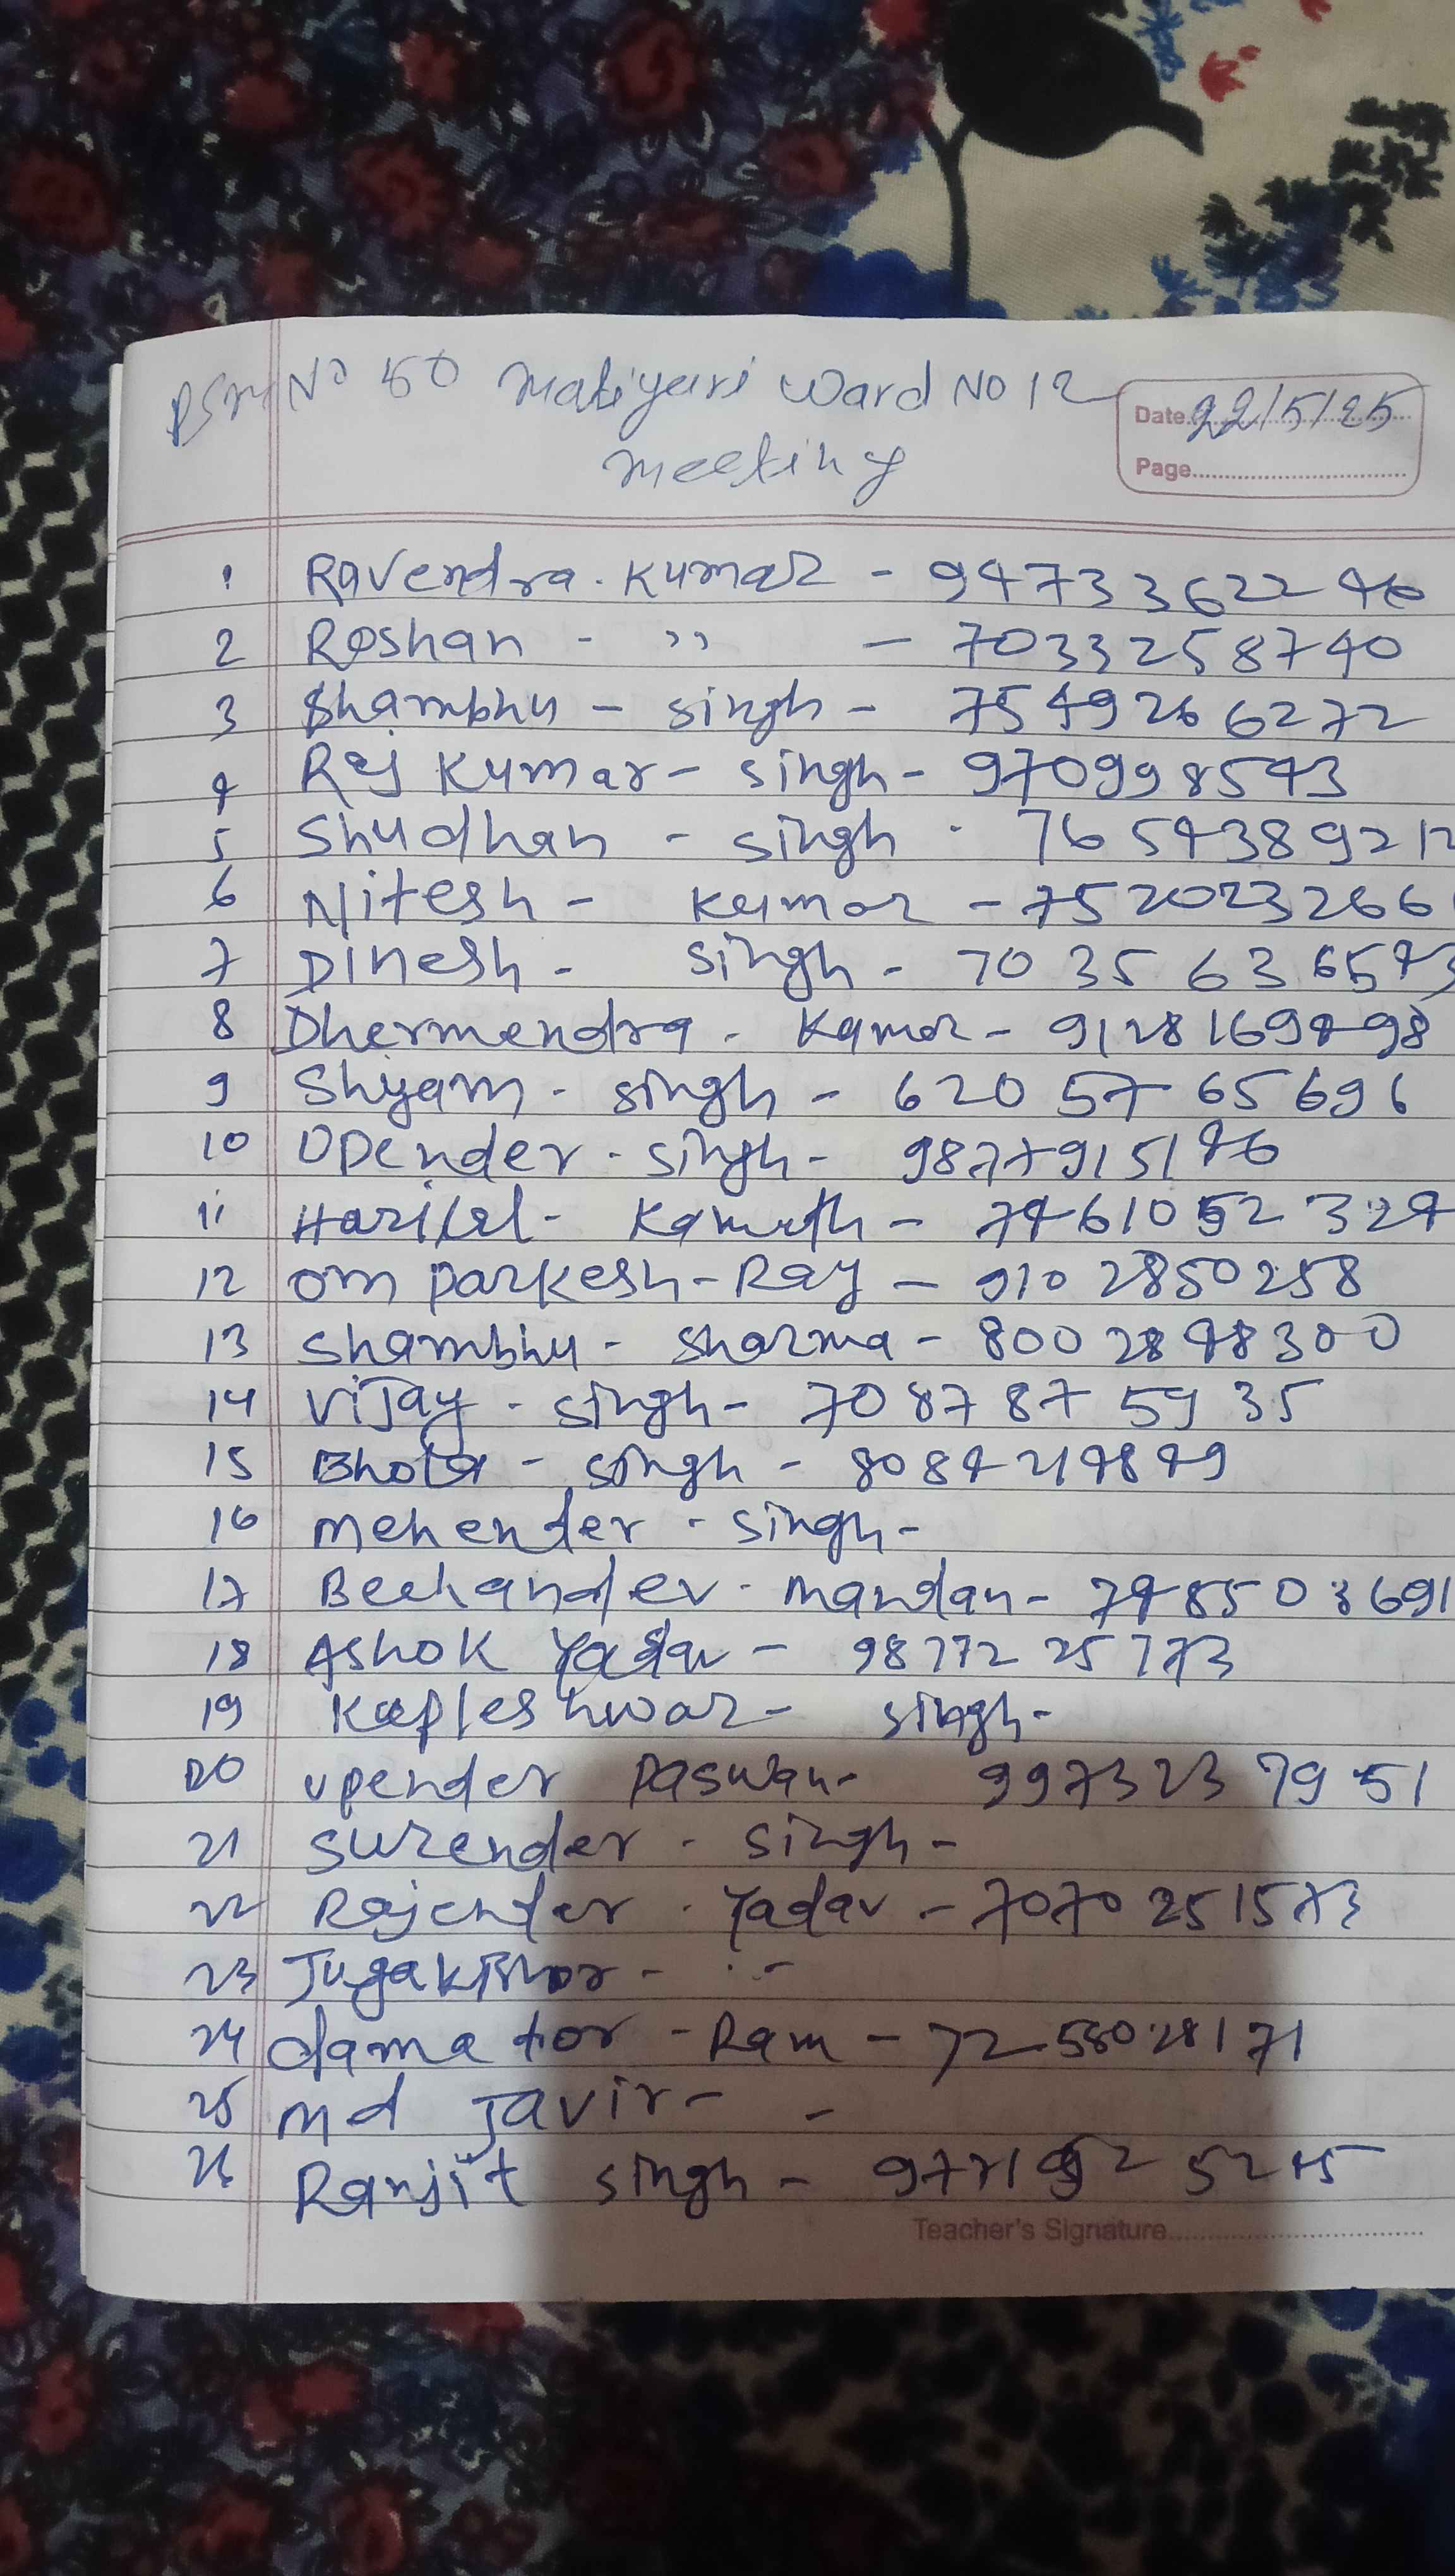 No 50 Matiyari Ward No 12
Date 22/5/25
meeting
Page
1 Ravendra . Kumar - 9473362246
2 Roshan - ,, - 7033258740
3 Shambhu - singh - 7549266272
4 Raj Kumar - singh - 970998543
5 Shudhan - singh . 7654389212
6 Nitesh - Kumar - 752023266
7 Dinesh - singh - 7035636543
8 Dhermendra - Kamar - 9128169498
9 Shyam - singh - 6205765696
10 Opender - singh - 9877915146
11 Harilal - Kamath - 7461052324
12 om parkesh - Ray - 9102850258
13 shambhu - sharma - 8002848300
14 Vijay - singh - 7087875935
15 Bhola - singh - 8084214849
16 mehender - singh -
17 - mandan - 7485503691
18 Ashok Yadav - 9877225773
19 Kapleshwar - singh -
20 upender paswan - 9973237951
21 surender - singh -
22 Rajender . Yadav - 7070251573
23 -
24 damator - Ram - 7258028171
25 md Javir - -
26 Ranjit singh -
Teacher's Signature